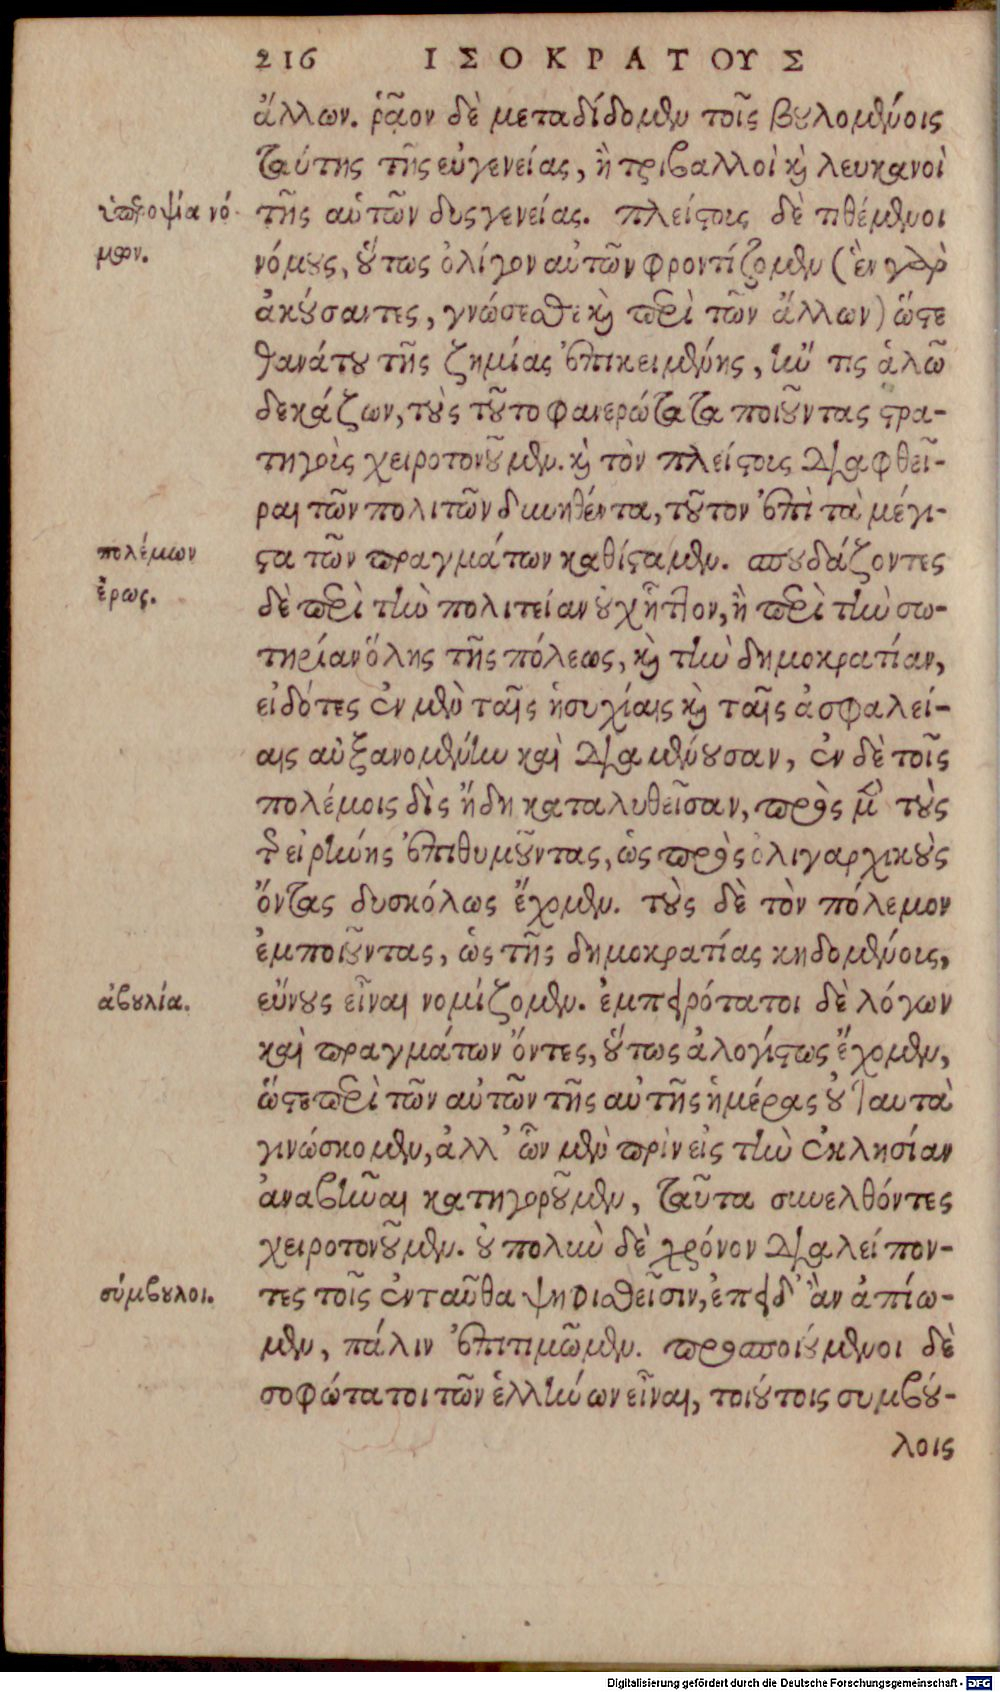 216 ΙΣΟΚΡΑΤΟΥΣ
ἄλλων. ῥᾷον δὲ μεταδίδομεν τοῖς βουλομένοις
ταύτης τῆς εὐγενείας, ἢ τριβαλλοὶ καὶ λευκανοὶ
ὑπεροψία νό-
μων.
τῆς αὑτῶν δυσγενείας. πλείστους δὲ τιθέμενοι
νόμους, οὕτως ὀλίγον αὐτῶν φροντίζομεν (ἓν γὰρ
ἀκούσαντες, γνώσεσθε καὶ περὶ τῶν ἄλλων) ὥστε
θανάτου τῆς ζημίας ἐπικειμένης, ἤν τις ἁλῷ
δεκάζων, τοὺς τοῦτο φανερώτατα ποιοῦντας στρα-
τηγοὺς χειροτονοῦμεν. καὶ τὸν πλείστους διαφθεῖ-
ραι τῶν πολιτῶν δυνηθέντα, τοῦτον ἐπὶ τὰ μέγι-
πολέμων
ἔρως.
στα τῶν πραγμάτων καθίσταμεν. σπουδάζοντες
δὲ περὶ τὴν πολιτείαν οὐχ ἧττον, ἢ περὶ τὴν σω-
τηρίαν ὅλης τῆς πόλεως, καὶ τὴν δημοκρατίαν,
εἰδότες ἐν μὲν ταῖς ἡσυχίαις καὶ ταῖς ἀσφαλεί-
αις αὐξανομένην καὶ διαμένουσαν, ἐν δὲ τοῖς
πολέμοις δὶς ἤδη καταλυθεῖσαν, πρὸς μὲν τοὺς
τῆς εἰρήνης ἐπιθυμοῦντας, ὡς πρὸς ὀλιγαρχικοὺς
ὄντας δυσκόλως ἔχομεν. τοὺς δὲ τὸν πόλεμον
ἐμποιοῦντας, ὡς τῆς δημοκρατίας κηδομένους,
ἀβουλία.
εὔνους εἶναι νομίζομεν. ἐμπειρότατοι δὲ λόγων
καὶ πραγμάτων ὄντες, οὕτως ἀλογίστως ἔχομεν,
ὥστε περὶ τῶν αὐτῶν τῆς αὐτῆς ἡμέρας οὐ ταυτὰ
γινώσκομεν, ἀλλ' ὧν μὲν πρὶν εἰς τὴν ἐκκλησίαν
ἀναβῆναι κατηγοροῦμεν, ταῦτα συνελθόντες
χειροτονοῦμεν. οὐ πολὺν δὲ χρόνον διαλείπον-
σύμβουλοι.
τες τοῖς ἐνταῦθα ψηφισθεῖσιν, ἐπειδ' ἂν ἀπίω-
μεν, πάλιν ἐπιτιμῶμεν. προσποιούμενοι δὲ
σοφώτατοι τῶν ἑλλήνων εἶναι, τοιούτοις συμβού-
λοις
Digitalisierung gefördert durch die Deutsche Forschungsgemeinschaft - DFG